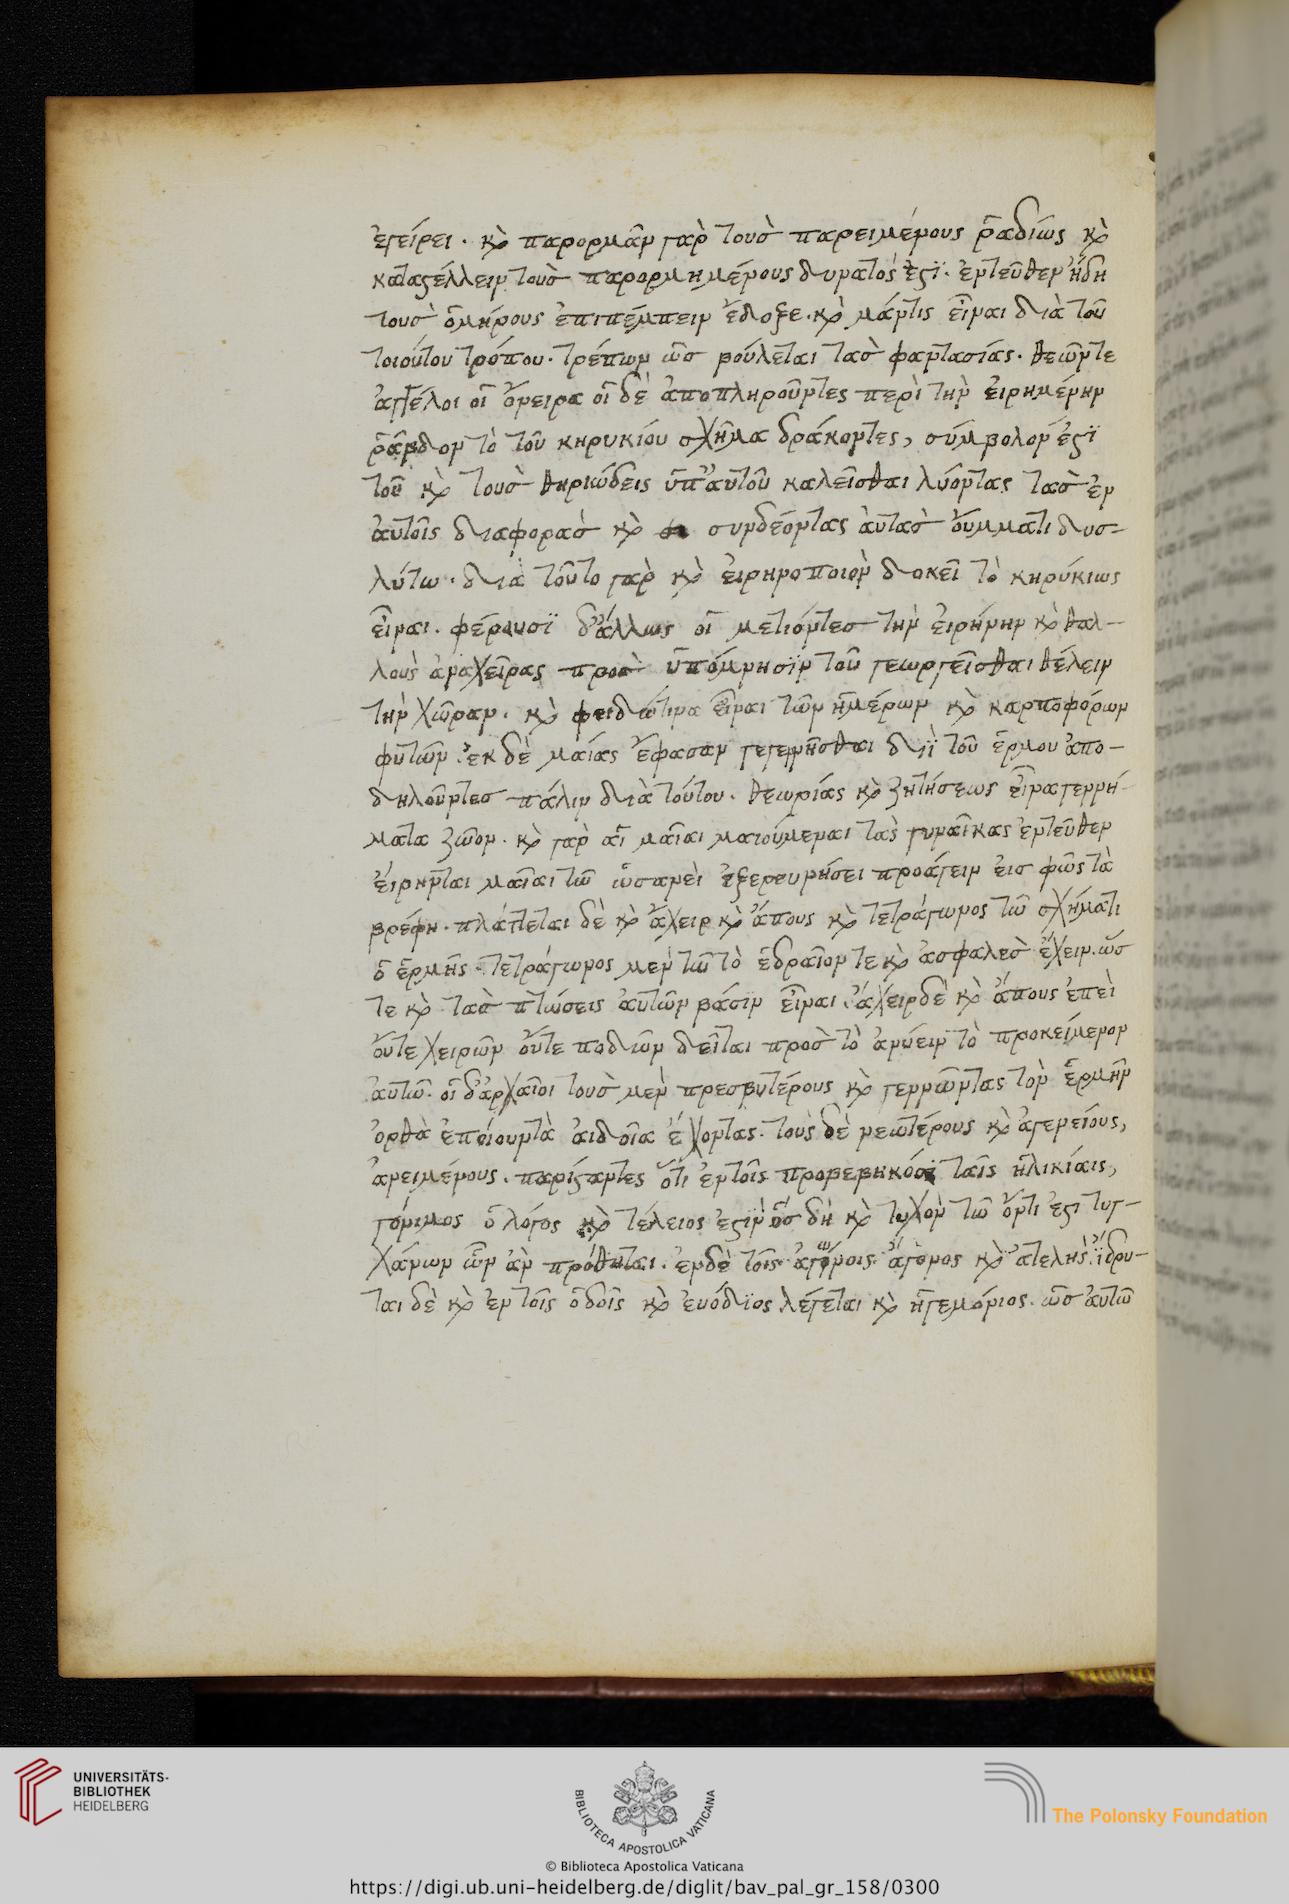 ἐγείρει. καὶ παρορμᾶν γαρ τουσ παρειμένους ῥαδίως καὶ
καταστέλλειν τουσ παρορμημένους δυνατός ἐστϊ. ἐντεῦθεν ἤδη
τουσ ὁμήρους ἐπιπέμπειν ἔδοξε. καὶ μάντις εἶναι διὰ τοῦ
τοιούτου τρόπου. τρέπων ὡσ βούλεται τασ φαντασίας. θεῶν τε
ἀγγέλοι οἱ ὄνειρα οἱ δὲ ἀποπληροῦντες περὶ τὴν εἰρημένην
ῥάβδον τὸ τοῦ κηρυκίου σχῆμα δράκοντες, σύμβολον ἐστϊ
τοῦ καὶ τουσ θηριώδεις ὑπ' αὐτοῦ καλεῖσθαι λύοντας τασ ἐν
αὐτοῖς διαφορασ καὶ συνδέοντας αὐτασ ὄυμματι δυσ-
λύτω. διὰ τοῦτο γαρ καὶ εἰρηνοποιὸν δοκεῖ τὸ κηρύκιως
εἶναι. φέρουσϊ δ' ἄλλως οἱ μετιόντεσ τὴν εἰρήνην καὶ θαλ-
λοὺς ἀναχεῖρας προσ ὑπόμνησϊν τοῦ γεωργεῖσθαι θέλειν
τὴν χῶραν. καὶ φειδώ τινα εἶναι τῶν ἡμέρων καὶ καρποφόρων
φυτῶν. ἐκ δὲ μαίας ἔφασαν γεγεννῆσθαι διῒ τοῦ ἑρμου ἀπο-
δηλοῦντεσ πάλιν διὰ τούτου. θεωρίας καὶ ζητήσεως εἶναι γεννή-
ματα ζῶον. καὶ γαρ αἱ μαῖαι μαιούμεναι τασ γυναῖκας ἐντεῦθεν
εἴρηνται μαῖαι τῶ ὡσανεὶ ἐξερευνήσει προάγειν εἰσ φῶς τὰ
βρέφη. πλάττεται δὲ καὶ ἄχειρ καὶ ἄπους καὶ τετράγωνος τῶ σχήματι
ὁ ἑρμῆς. τετράγωνος μεν τῶ τὸ ἑδραῖον τε καὶ ἀσφαλεσ ἔχειν. ὥσ
τε καὶ τασ πτώσεις αὐτῶν βάσιν εἶναι. ἄχειρ δὲ καὶ ἄπους ἐπεὶ
οὔτε χειρῶν οὔτε ποδῶν δεῖται προσ τὸ ἀνύειν τὸ προκείμενον
αὐτῶ. οἱ δ' ἀρχαῖοι τουσ μεν πρεσβυτέρους καὶ γεννῶντας τὸν ἑρμῆν
ὀρθὰ ἐποίουν τὰ αἰδοῖα ἔχοντας. τοὺς δὲ νεωτέρους καὶ ἀγενείους,
ἀνειμένους. παρίσταντες ὅτι ἐν τοῖς προβεβηκόσϊ ταῖς ἡλικίαις,
γόνιμος ὁ λόγος καὶ τέλειος ἐστὶν ὅσ δὴ καὶ τυχὸν τῶ ὄντι ἐστι τυγ-
χάνων ὧν ἂν πρόθηται. ἐν δὲ τοῖς ἀγώνοις. ἄγονος καὶ ἀτελής. ἵδρυ-
ται δὲ καὶ ἐν τοῖς ὁδοῖς καὶ ἐνόδϊος λέγεται καὶ ἡγεμόνιος. ὡσ αὐτῶ
UNIVERSITÄTS-
BIBLIOTHEK
HEIDELBERG
BIBLIOTECA APOSTOLICA VATICANA
© Biblioteca Apostolica Vaticana
The Polonsky Foundation
https://digi.ub.uni-heidelberg.de/diglit/bav_pal_gr_158/0300